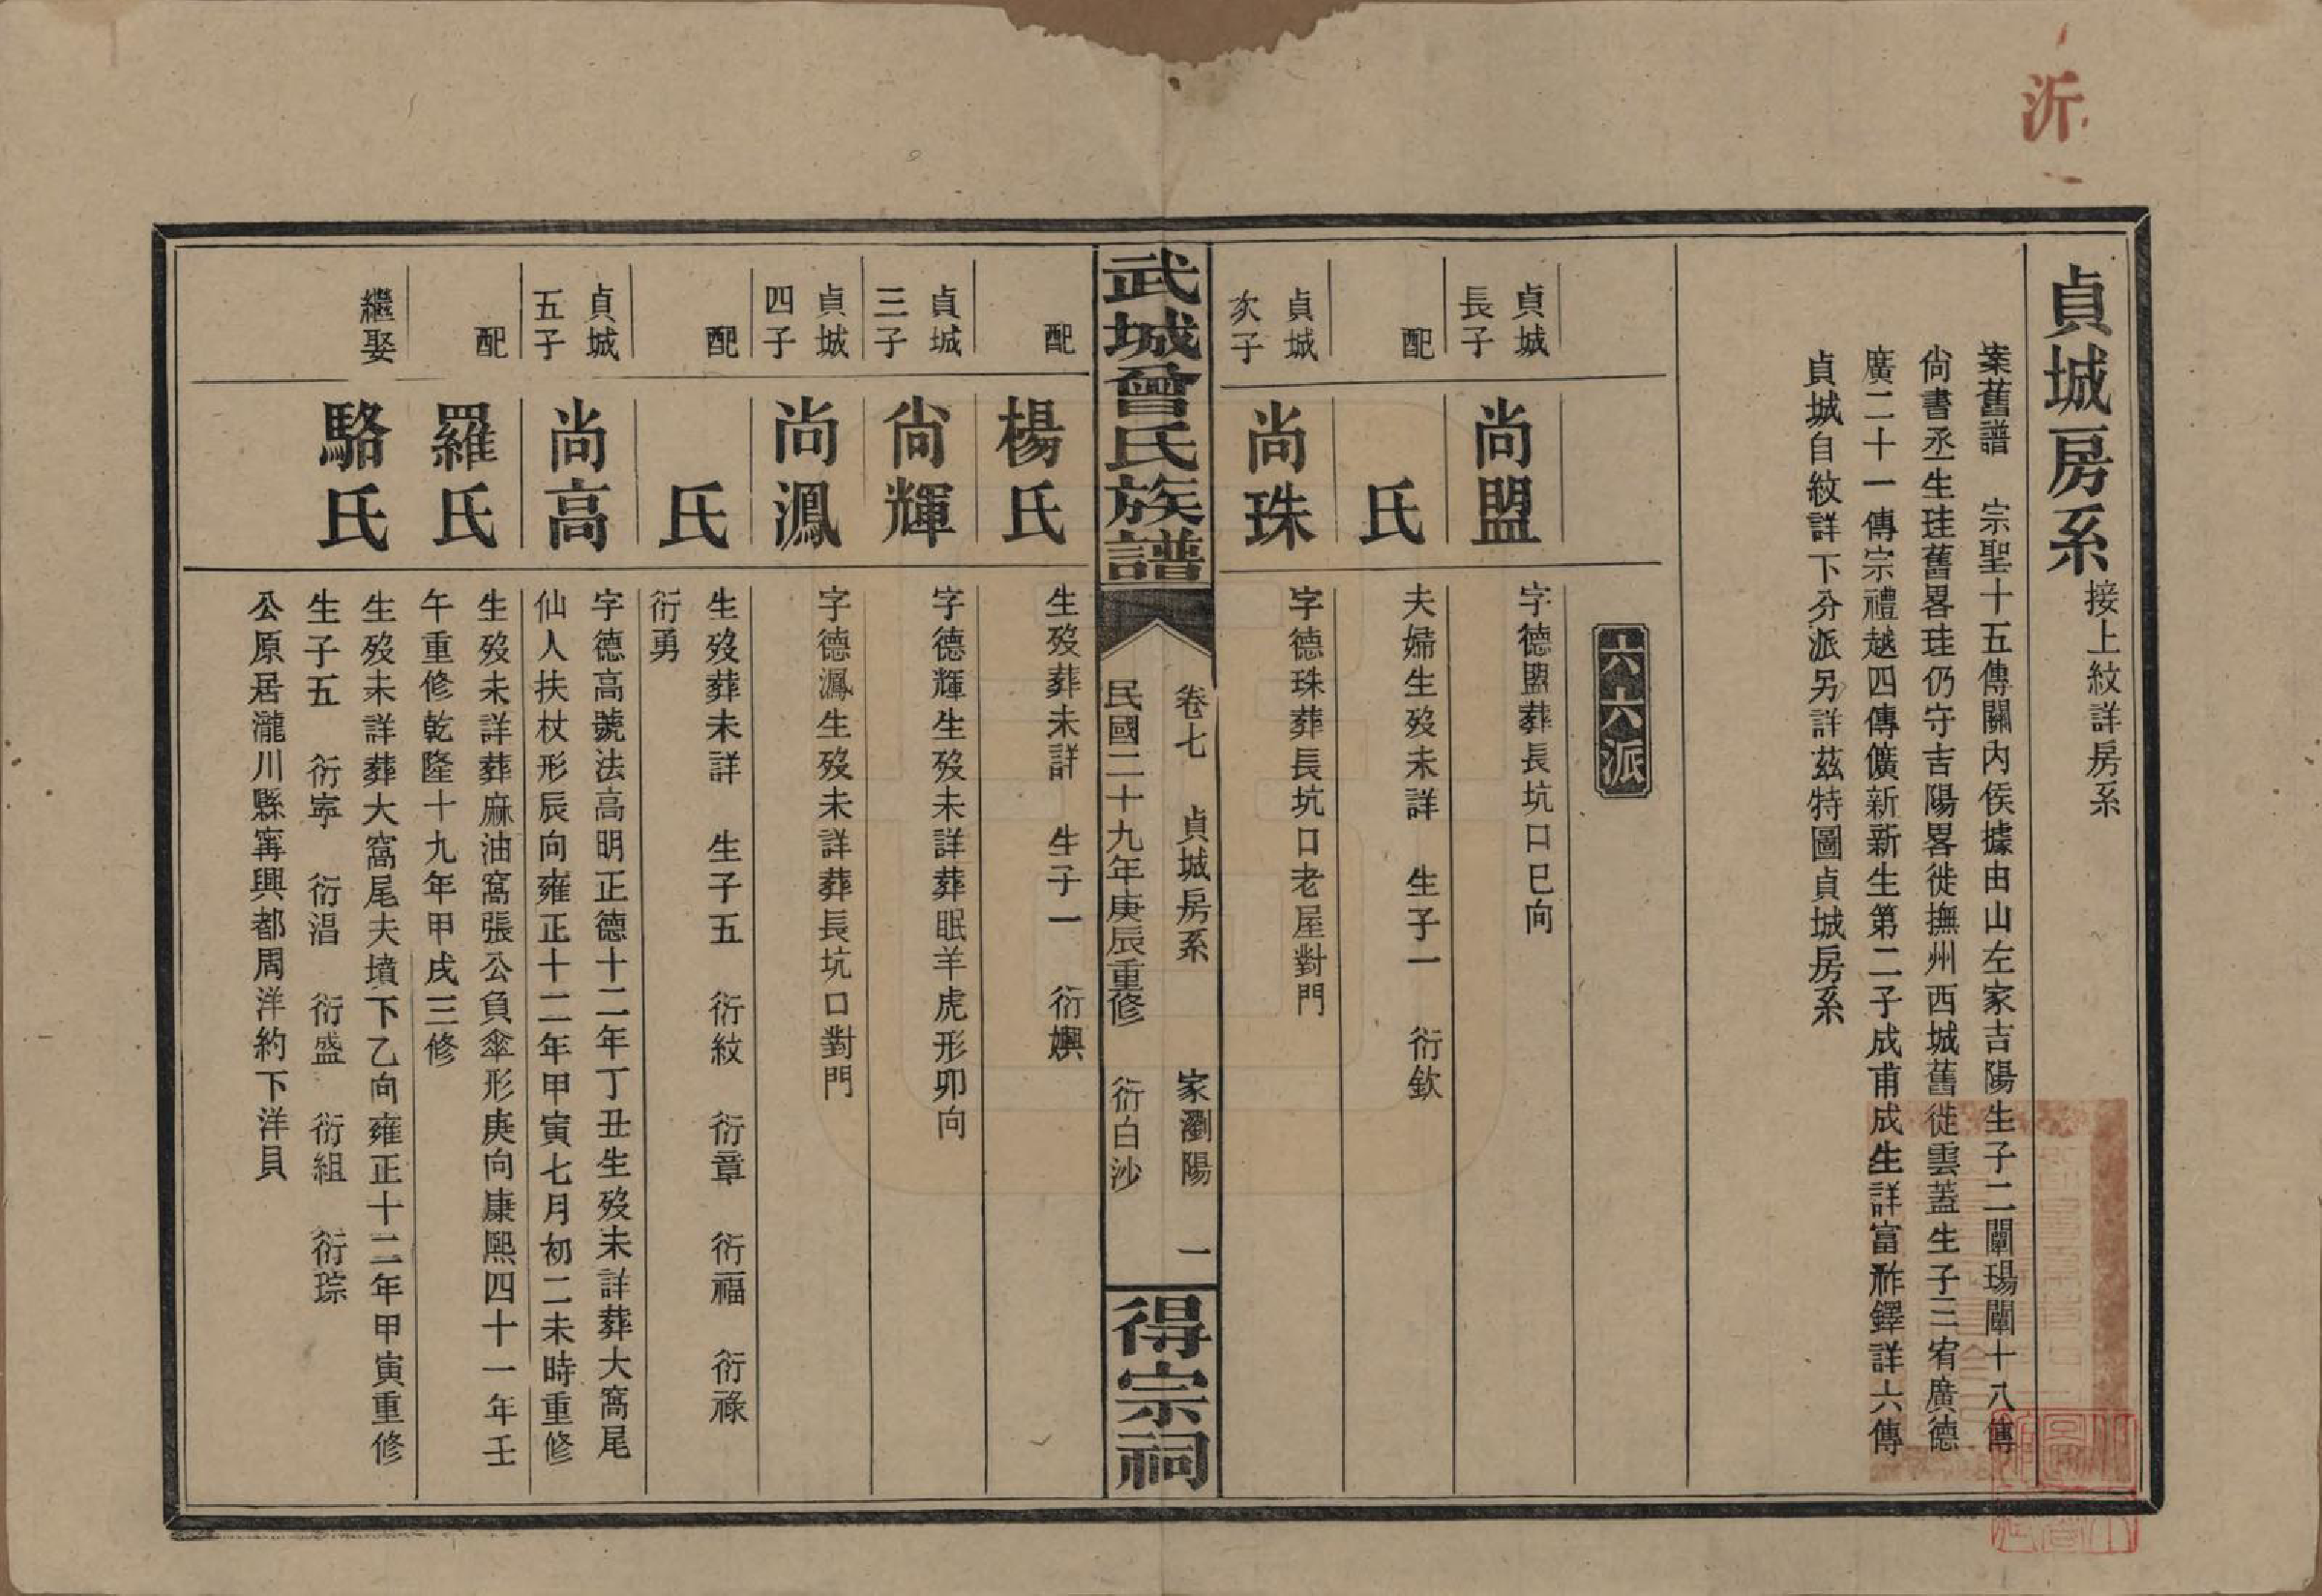 沂
貞城房系接上紋詳房系
案舊譜 宗聖十五傳關內侯據由山左家吉陽生子二闡瑒闡十八傳
尙書丞生珪舊畧珪仍守吉陽畧徙撫州西城舊徙雲蓋生子三宥廣德
廣二十一傳宗禮越四傳儣新新生第二子成甫成生詳富祚鐸詳六傳
貞城自紋詳下分派另詳茲特圖貞城房系
六六派
貞城長子 尚盟 字德盟葬長坑口巳向
配 氏 夫婦生歿未詳 生子一 衍欽
貞城次子 尚珠 字德珠葬長坑口老屋對門
武城曾氏族譜
卷七 貞城房系 家瀏陽 一
民國二十九年庚辰重修 衍白沙
得宗祠
配 楊氏 生歿葬未詳 生子一 衍嶼
貞城三子 尙輝 字德輝生歿未詳葬眠羊虎形卯向
貞城四子 尚鳯 字德鳯生歿未詳葬長坑口對門
配 氏 生歿葬未詳 生子五 衍紋 衍章 衍福 衍祿
衍勇
貞城五子 尚高 字德高號法高明正德十二年丁丑生歿未詳葬大窩尾
仙人扶杖形辰向雍正十二年甲寅七月初二未時重修
配 羅氏 生歿未詳葬麻油窩張公負傘形庚向康熙四十一年壬
午重修乾隆十九年甲戌三修
繼娶 駱氏 生歿未詳葬大窩尾夫墳下乙向雍正十二年甲寅重修
生子五 衍寧 衍淐 衍盛 衍組 衍琮
公原居瀧川縣寗興都周洋約下洋貝